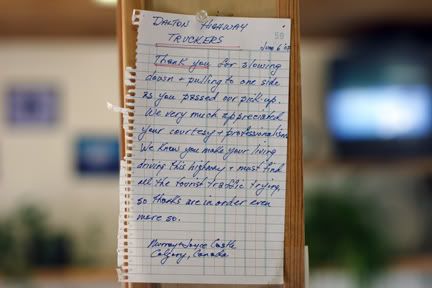 DALTON HIGHWAY
TRUCKERS
50
June 6
Thank you for slowing
down + pulling to one side
as you passed our pick-up.
We very much appreciated
your courtesy + professionalism
We know you make your living
driving this highway + must find
all the tourist traffic trying,
so thanks are in order even
more so.
Murray + Joyce Castle
Calgary, Canada